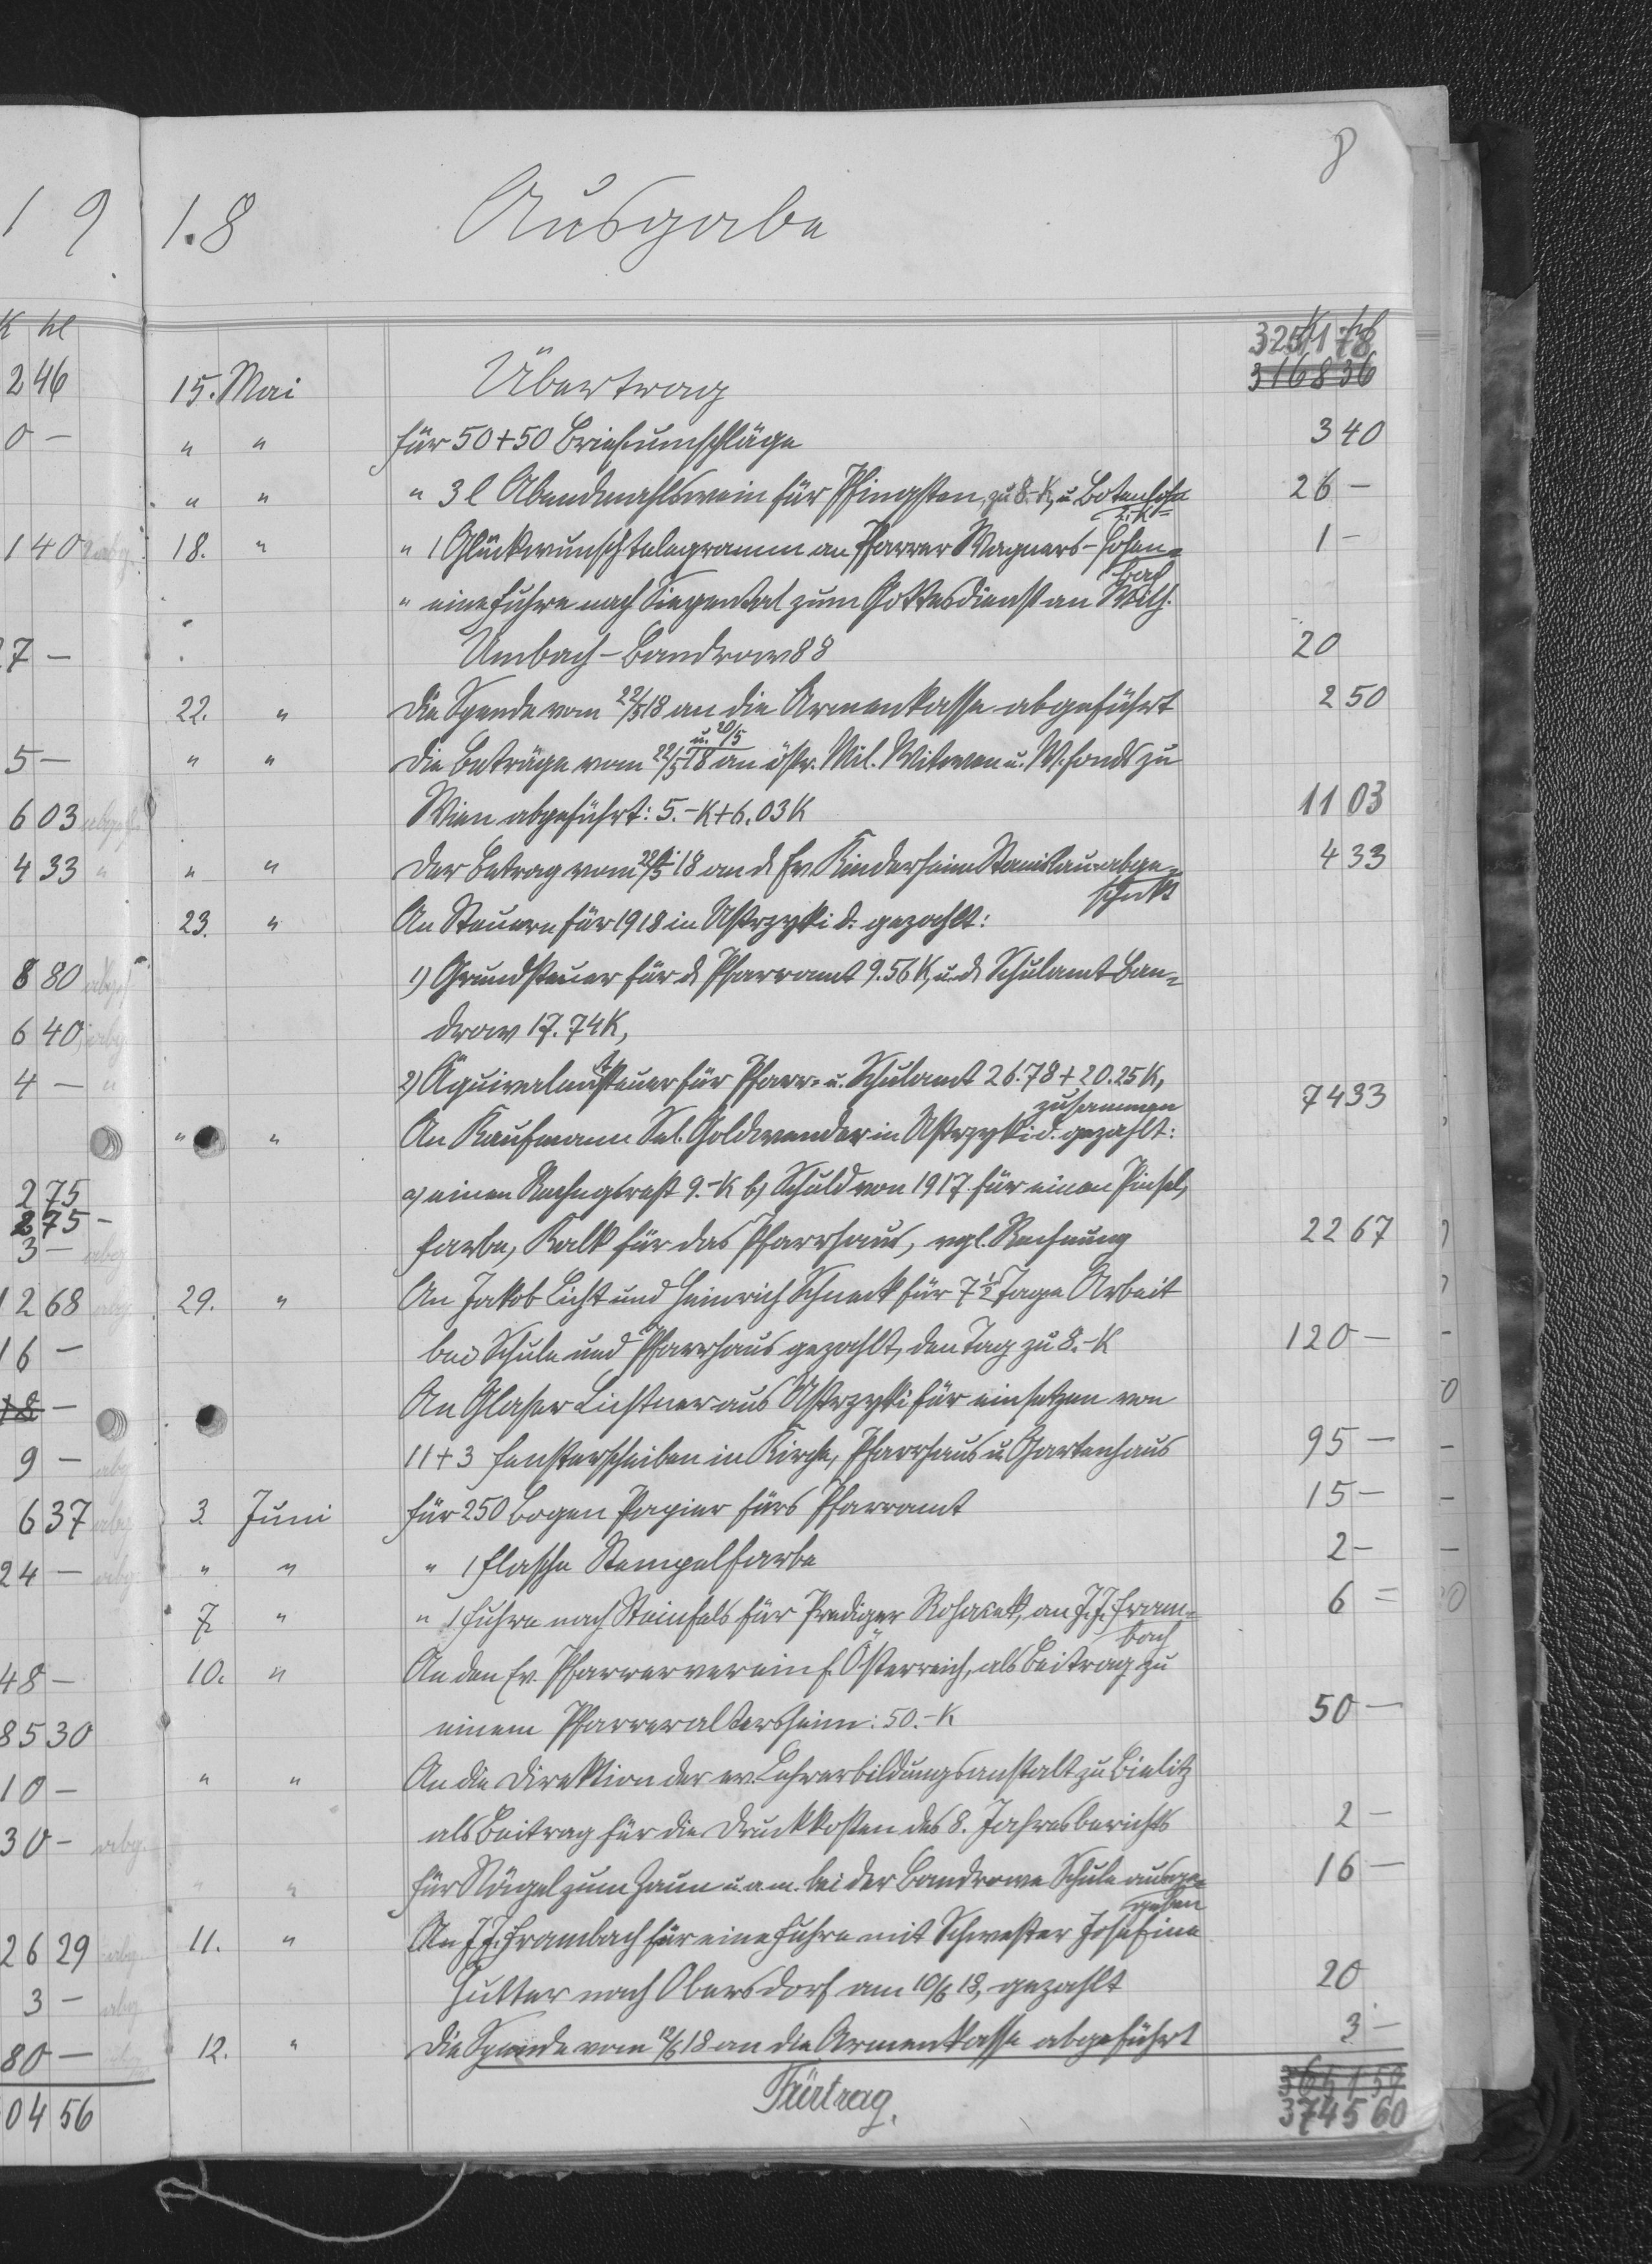 8
1 9 1.8 Ausgabe
K hl
K hl
3251 78
246 15. Mai Übertrag 3168 36
0 — " " für 50+50 Briefumschläge 3 40
" " " 3 l Abendmahlswein für Pfingsten, zu 8.-K, u. Botenlohn 26 —
2.-K=
140 abg. 18. " " 1 Glückwunschtelegramm an Pfarrer Wagners-Hohen= 1 —
bach
" eine Fuhre nach Siegenthal zum Gottesdienst an Wilh.
27 — Umbach-Bandrow 88 20
22. " Die Spende vom 22/5 18 an die Armenkasse abgeführt 2 50
u. 20/5
5 — " " Die Beträge vom 22/5 18 an östr. Mil. Witwen u. W.fonds zu
603 abgef. Wien abgeführt: 5.-K+6.03 K 11 03
433 " " " Der Betrag vom 22/5 18 an d. Ev. Kinderheime Stanislau abge= 4 33
schickt
23. " An Steuern für 1918 in Ustrzyki d. gezahlt:
880 abgef. 1) Grundsteuer für d. Pfarramt 9.56 K, u. d. Schulamt Ban=
640 abg. drow 17.74 K,
4 — " 2) Äquivalentsteuer für Pfarr- u. Schulamt 26.78 + 20.25 K,
zusammen 74 33
" " An Kaufmann Sal. Goldwender in Ustrzyki d. gezahlt:
275 a) einen Rechngsrest 9.-K b) Schuld von 1917 für einen Pinsel,
275 —
3 — abg. Farbe, Kalk für das Pfarrhaus, vgl. Rechnung 22 67
1268 abg. 29. " An Jakob Licht und Heinrich Schneck für 7 ½ Tage Arbeit
16 — bei Schule und Pfarrhaus gezahlt, den Tag zu 8.-K 120 —
18 — An Glaser Lichtner aus Ustrzyki für einsetzen von
9 — abg 11+3 Fensterscheiben in Kirche, Pfarrhaus u. Gartenhaus 95 —
637 abg 3. Juni für 250 Bogen Papier fürs Pfarramt 15 —
24 — abg. " " " 1 Flasche Stempelfarbe 2 —
7. " " 1 Fuhre nach Steinfels für Prediger Rohacek, an J. J. Fram= 6 =
bach
48 — 10. " An den Ev. Pfarrerverein f. Österreich, als Beitrag zu
8530 einem Pfarreraltersheim: 50.-K 50 —
10 — " " An die Direktion der ev. Lehrerbildungsanstalt zu Bielitz
30 — abg. als Beitrag für die Druckkosten des 8. Jahresberichts 2 —
" " für Nägel zum Zaun u. a. m. bei der Bandrowe Schule ausge= 16 —
geben
2629 abg. 11. " An J. J. Frambach für eine Fuhre mit Schwester Josefine
3 — abg Hutter nach Obersdorf am 10/6 18, gezahlt 20
80 — abg 12. " Die Spende vom 12/6 18 an die Armenkasse abgeführt 3 —
3651 59
0456 Fürtrag. 3745 60